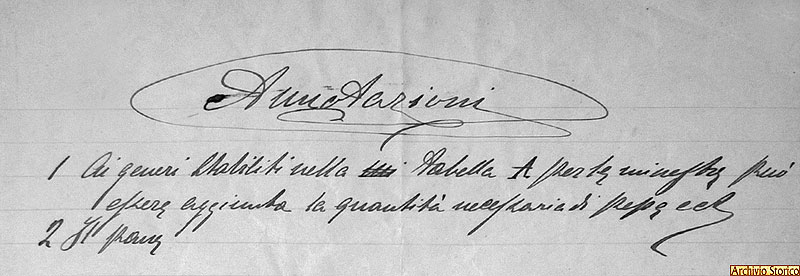 Annotazioni
1 Ai generi stabiliti nella tabella A per la minestra può
essere aggiunta la quantità necessaria di pepe ecc
2 Il pane
Archivio Storico